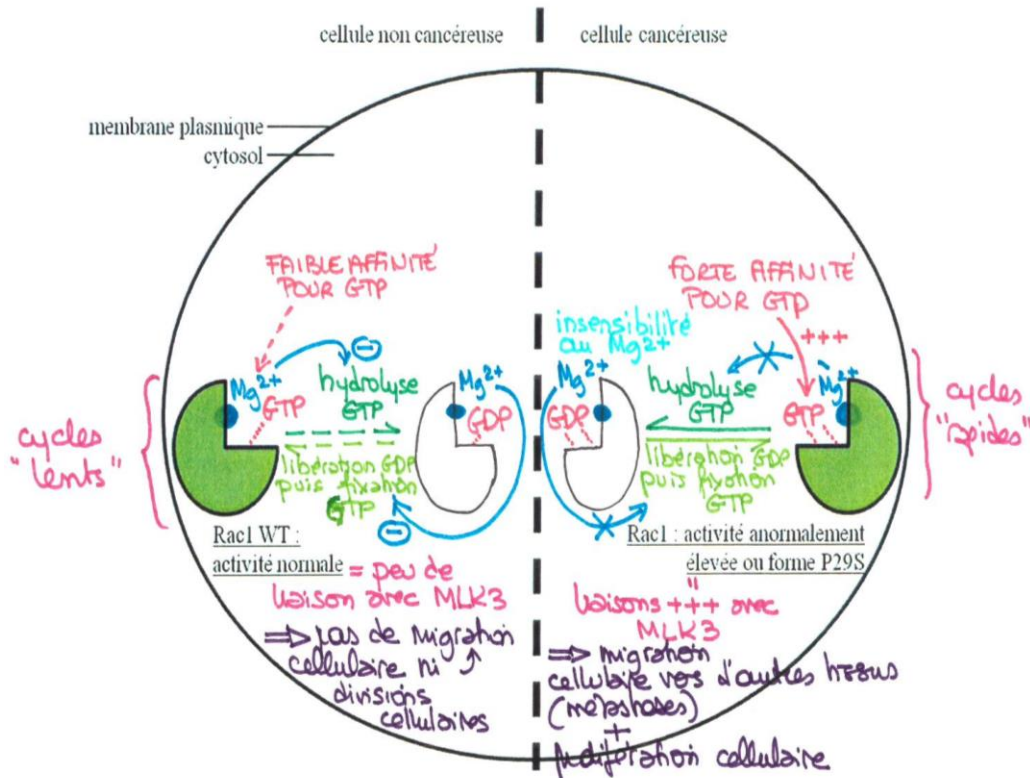 cellule non cancéreuse
cellule cancéreuse
membrane plasmique
cytosol
FAIBLE AFFINITÉ
POUR GTP
Mg2+
GTP
⊖
hydrolyse
GTP
Mg2+
GDP
libération GDP
puis fixation
GTP
⊖
cycles
"lents"
Rac1 WT :
activité normale = peu de
liaison avec MLK3
⇒ pas de migration
cellulaire ni ↗
divisions
cellulaires
FORTE AFFINITÉ
POUR GTP
+++
insensibilité
au Mg2+
Mg2+
GDP
hydrolyse
GTP
Mg2+
GTP
libération GDP
puis fixation
GTP
cycles
"rapides"
Rac1 : activité anormalement
élevée ou forme P29S
=
liaisons +++ avec
MLK3
⇒ migration
cellulaire vers d'autres tissus
(métastases)
+
prolifération cellulaire